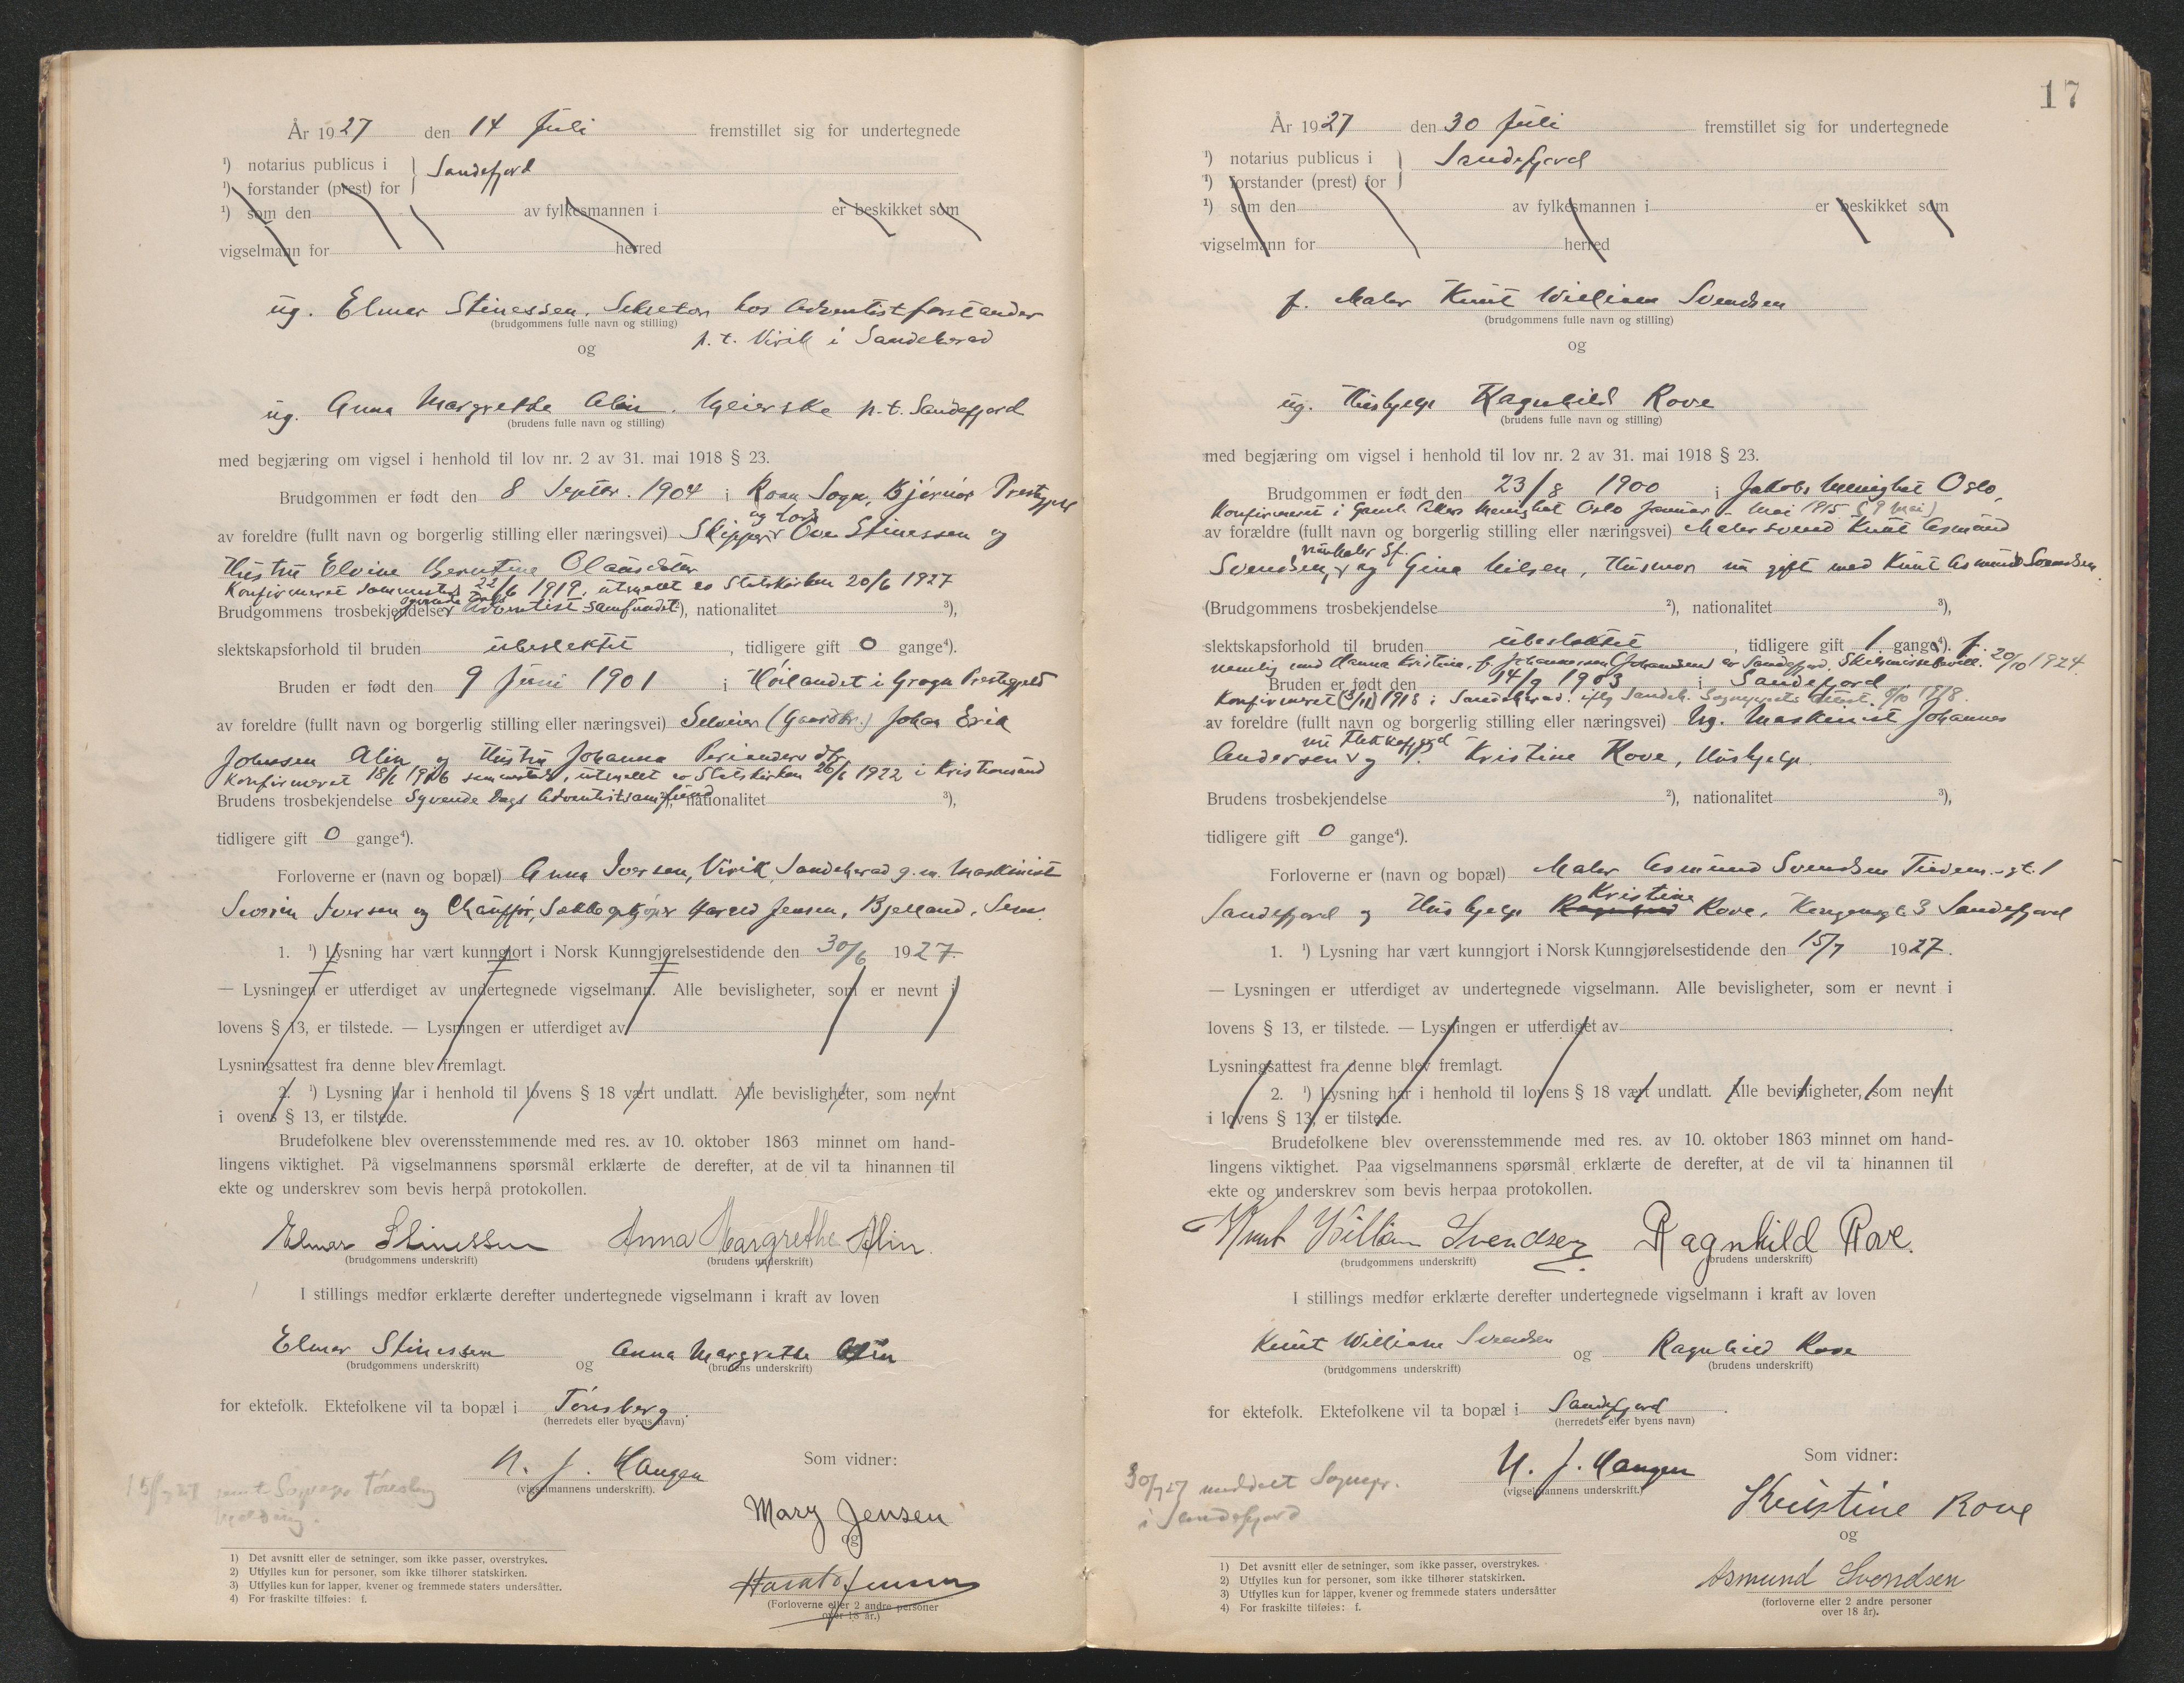 År 1927 den 14 Juli fremstillet sig for undertegnede
¹) notarius publicus i } Sandefjord
¹) forstander (prest) for
¹) som den av fylkesmannen i er beskikket som
vigselmann for herred
ug. Elmer Stinessen. Sekretær hos Adventistforstander
(brudgommens fulle navn og stilling)
p. t. Virik i Sandeherad
og
ug. Anna Margrethe Alin. Meierske p. t. Sandefjord
(brudens fulle navn og stilling)
med begjæring om vigsel i henhold til lov nr. 2 av 31. mai 1918 § 23.
Brudgommen er født den 8 Septbr. 1904 i Roan Sogn, Bjørnør Prestegjeld
av foreldre (fullt navn og borgerlig stilling eller næringsvei) Skipper Ove Stinessen og
Hustru Elvine Berntine Olausdatter
Konfirmeret sammesteds 22/6 1919, utmeldt av Statskirken 20/6 1927
Brudgommens trosbekjendelse syvende dags Adventistsamfundet ²), nationalitet ³),
slektskapsforhold til bruden ubeslektet, tidligere gift 0 gange⁴).
Bruden er født den 9 Juni 1901 i Høilandet i Grong Prestegjeld
av foreldre (fullt navn og borgerlig stilling eller næringsvei) Selveier (Gaardbr.) Johan Erik
Johnsen Alin og Hustru Johanna
Konfirmeret 18/6 1916 sammesteds, utmeldt av Statskirken 26/6 1922 i Kristiansund
Brudens trosbekjendelse Syvende Dags Adventistsamfund ²), nationalitet ³),
tidligere gift 0 gange⁴).
Forloverne er (navn og bopæl) Anna Iversen, Virik, Sandeherad g. m. Maskinist
Severin Iversen og Chauffør, Harald Jensen, Bjelland, Sem.
1. ¹) Lysning har vært kunngjort i Norsk Kunngjørelsestidende den 30/6 1927.
— Lysningen er utferdiget av undertegnede vigselmann. Alle bevisligheter, som er nevnt i
lovens § 13, er tilstede. — Lysningen er utferdiget av
Lysningsattest fra denne blev fremlagt.
2. ¹) Lysning har i henhold til lovens § 18 vært undlatt. Alle bevisligheter, som nevnt
i ovens § 13, er tilstede.
Brudefolkene blev overensstemmende med res. av 10. oktober 1863 minnet om hand-
lingens viktighet. På vigselmannens spørsmål erklærte de derefter, at de vil ta hinannen til
ekte og underskrev som bevis herpå protokollen.
Elmer Stinessen Anna Margrethe Alin.
(brudgommens underskrift) (brudens underskrift)
I stillings medfør erklærte derefter undertegnede vigselmann i kraft av loven
Elmer Stinessen og Anna Margrethe Alin
(brudgommens underskrift) (brudens underskrift)
for ektefolk. Ektefolkene vil ta bopæl i Tønsberg.
(herredets eller byens navn)
N. J. Haugen
(vigselmannens underskrift).
Som vidner:
15/7 27 sendt Sognepr. Tønsberg
melding.
Mary Jensen
og
Harald Jensen
(Forloverne eller 2 andre personer
over 18 år.)
1) Det avsnitt eller de setninger, som ikke passer, overstrykes.
2) Utfylles kun for personer, som ikke tilhører statskirken.
3) Utfylles kun for lapper, kvener og fremmede staters undersåtter.
4) For fraskilte tilføies: f.
17
År 1927 den 30 Juli fremstillet sig for undertegnede
¹) notarius publicus i } Sandefjord
¹) forstander (prest) for
¹) som den av fylkesmannen i er beskikket som
vigselmann for herred
f. Maler Knut William Svendsen
(brudgommens fulle navn og stilling)
og
ug. Hushjelp Ragnhild Rove
(brudens fulle navn og stilling)
med begjæring om vigsel i henhold til lov nr. 2 av 31. mai 1918 § 23.
Brudgommen er født den 23/8 1900 i Jakobs Menighet Oslo,
Konfirmeret i Gamle Akers Menighet Oslo Januar - Mai 1915 (9 Mai)
av forældre (fullt navn og borgerlig stilling eller næringsvei) Malersvend Knut Asmund
Svendsen, og Gina Nilsen, Husmor nu gift med Knut Asmund Svendsen.
(Brudgommens trosbekjendelse ²), nationalitet ³),
slektskapsforhold til bruden ubeslektet, tidligere gift 1 gange⁴). f.
nemlig med Hanna Kristine, f. Johannessen (Johansen) av Sandefjord. Skilsmissebevill. 20/10 1924.
Bruden er født den 14/9 1903 i Sandefjord
Konfirmeret 1918 i Sandeherad. iflg Sandeh. Sogneprests attest. 6/10 1918.
av foreldre (fullt navn og borgerlig stilling eller næringsvei) Ug. Maskinist Johannes
Andersen nu Flekkefjord og Kristine Rove, Hushjelp.
Brudens trosbekjendelse ²), nationalitet ³),
tidligere gift 0 gange⁴).
Forloverne er (navn og bopæl) Maler Asmund Svendsen Tidem.-gt. 1
Sandefjord og Hushjelp Kristine Rove, Kongensgt. 3 Sandefjord
1. ¹) Lysning har vært kunngjort i Norsk Kunngjørelsestidende den 15/7 1927.
— Lysningen er utferdiget av undertegnede vigselmann. Alle bevisligheter, som er nevnt i
lovens § 13, er tilstede. — Lysningen er utferdiget av
Lysningsattest fra denne blev fremlagt.
2. ¹) Lysning har i henhold til lovens § 18 vært undlatt. Alle bevisligheter, som nevnt
i lovens § 13, er tilstede.
Brudefolkene blev overensstemmende med res. av 10. oktober 1863 minnet om hand-
lingens viktighet. Paa vigselmannens spørsmål erklærte de derefter, at de vil ta hinannen til
ekte og underskrev som bevis herpaa protokollen.
Knut William Svendsen Ragnhild Rove.
(brudgommens underskrift) (brudens underskrift)
I stillings medfør erklærte derefter undertegnede vigselmann i kraft av loven
Knut William Svendsen og Ragnhild Rove
(brudgommens underskrift) (brudens underskrift)
for ektefolk. Ektefolkene vil ta bopæl i Sandefjord.
(herredets eller byens navn)
N. J. Haugen
(vigselmannens underskrift.)
Som vidner:
30/7 27 meddelt Sognepr.
i Sandefjord
Kristine Rove
og
Asmund Svendsen
(forloverne eller 2 andre personer
over 18 år).
1) Det avsnitt eller de setninger, som ikke passer, overstrykes.
2) Utfylles kun for personer, som ikke tilhører statskirken.
3) Utfylles kun for lapper, kvener og fremmede staters undersåtter
4) For fraskilte tilføies: f.